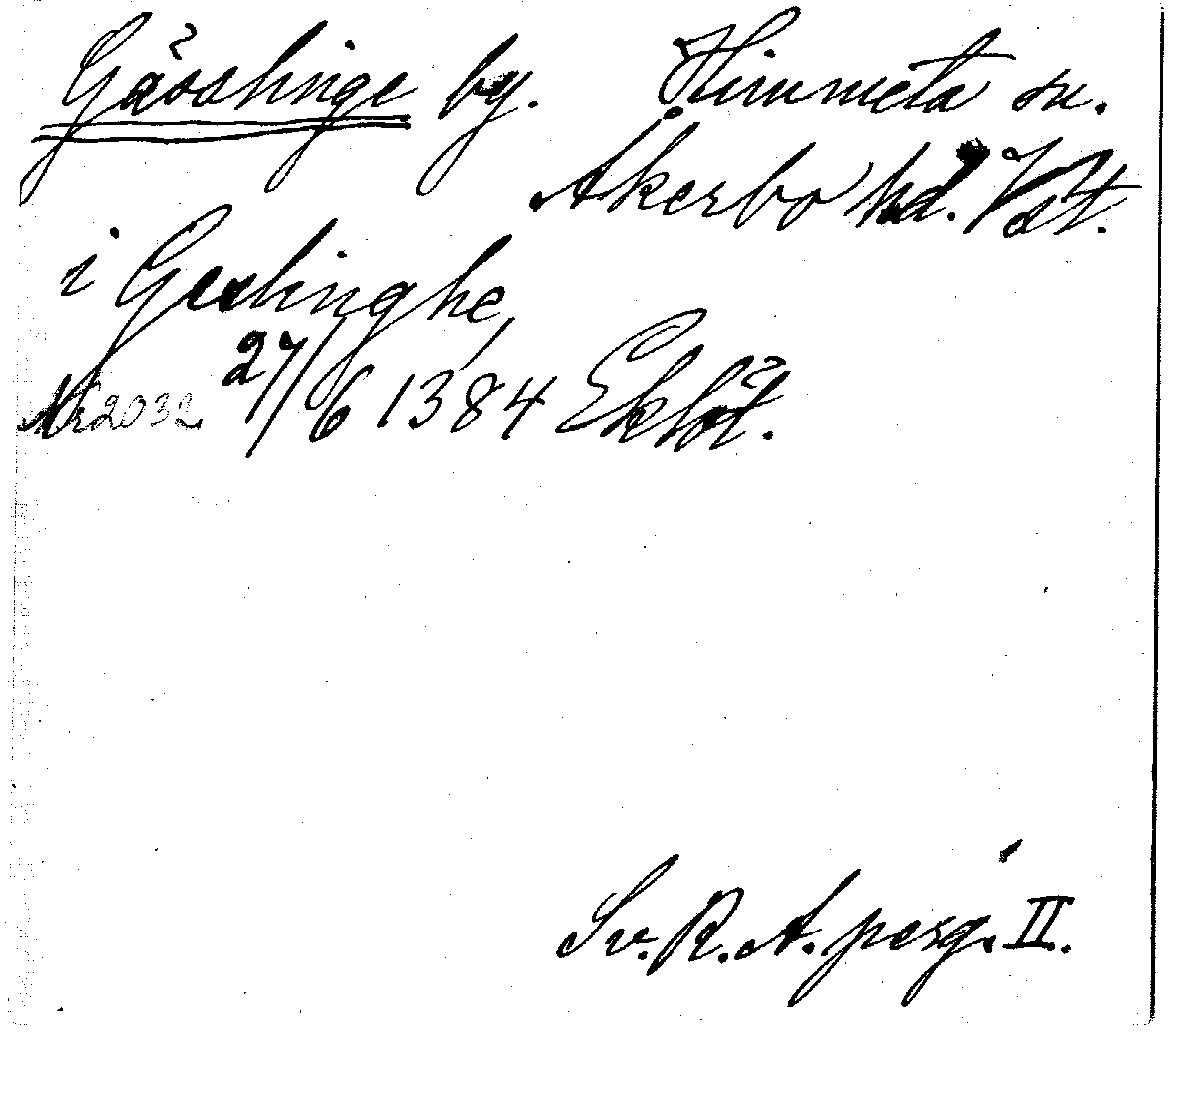 Gässlinge by. Himmeta sn.
Åkerbo hd. Vst.
i Geslinghe,
Nr 2032. 27/6 1384 Eklöt.
Sv. R. A. perg. II.